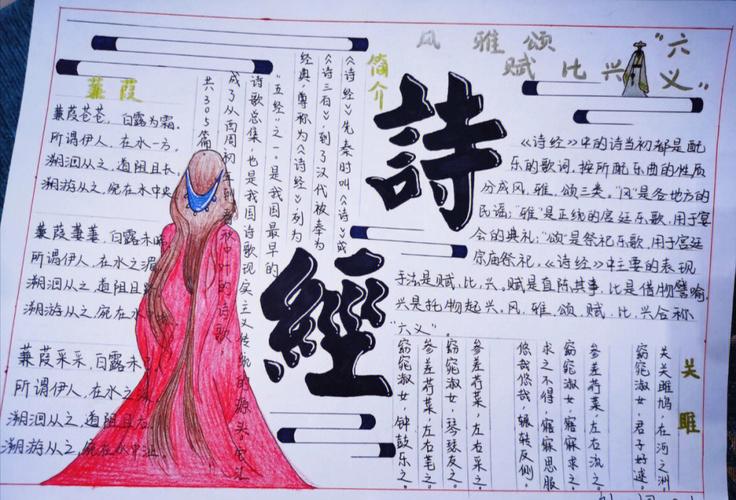 蒹葭
蒹葭苍苍,白露为霜.
所谓伊人,在水一方,
溯洄从之,道阻且长,
溯游从之,宛在水中央
蒹葭萋萋,白露未晞
所谓伊人,在水之湄
溯洄从之,道阻且
溯游从之,宛在水中
蒹葭采采,白露未
所谓伊人,在水之
溯洄从之,道阻且右
溯游从之,宛在水中沚
简介
《诗经》先秦时叫《诗》或
《诗三百》到了汉代被奉为
经典,尊称为《诗经》列为
“五经”之一。是我国最早的
诗歌总集,也是我国诗歌现实主义传统的源头它汇
成了从西周初年到春秋中叶的诗歌,
共305篇
詩
經
风雅颂
赋比兴
“六义”
《诗经》中的诗当初都是配
乐的歌词,按所配乐曲的性质
分成风、雅、颂三类。“风”是各地方的
民谣;“雅”是正统的宫廷乐歌,用于宴
会的典礼;“颂”是祭祀乐歌,用于宫廷
宗庙祭祀。《诗经》中主要的表现
手法是赋、比、兴。赋是直陈其事,比是借物譬喻,
兴是托物起兴。风、雅、颂、赋、比、兴合称
“六义”。
关雎
关关雎鸠,在河之洲
窈窕淑女,君子好逑。
参差荇菜,左右流之。
窈窕淑女,寤寐求之。
求之不得,寤寐思服
悠哉悠哉,辗转反侧。
参差荇菜,左右采之。
窈窕淑女,琴瑟友之。
参差荇菜,左右芼之。
窈窕淑女,钟鼓乐之。